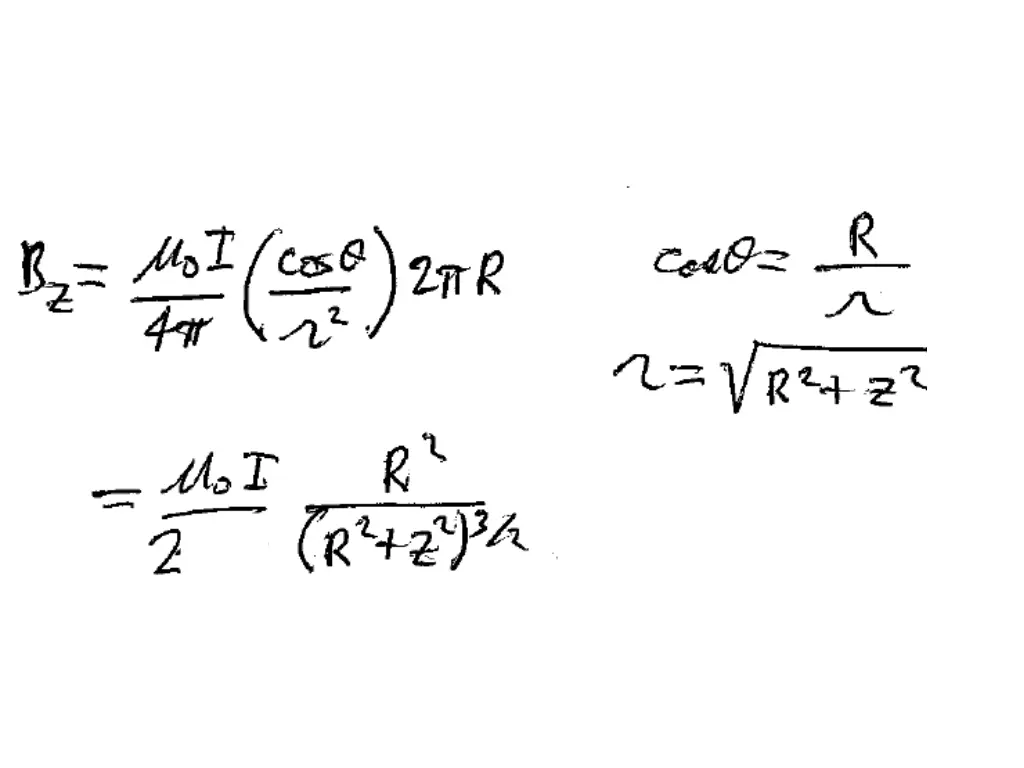 B_z = μ₀I/4π (cosθ/r²) 2πR
cosθ = R/r
r = √(R²+z²)
= μ₀I/2 R²/(R²+z²)^3/2